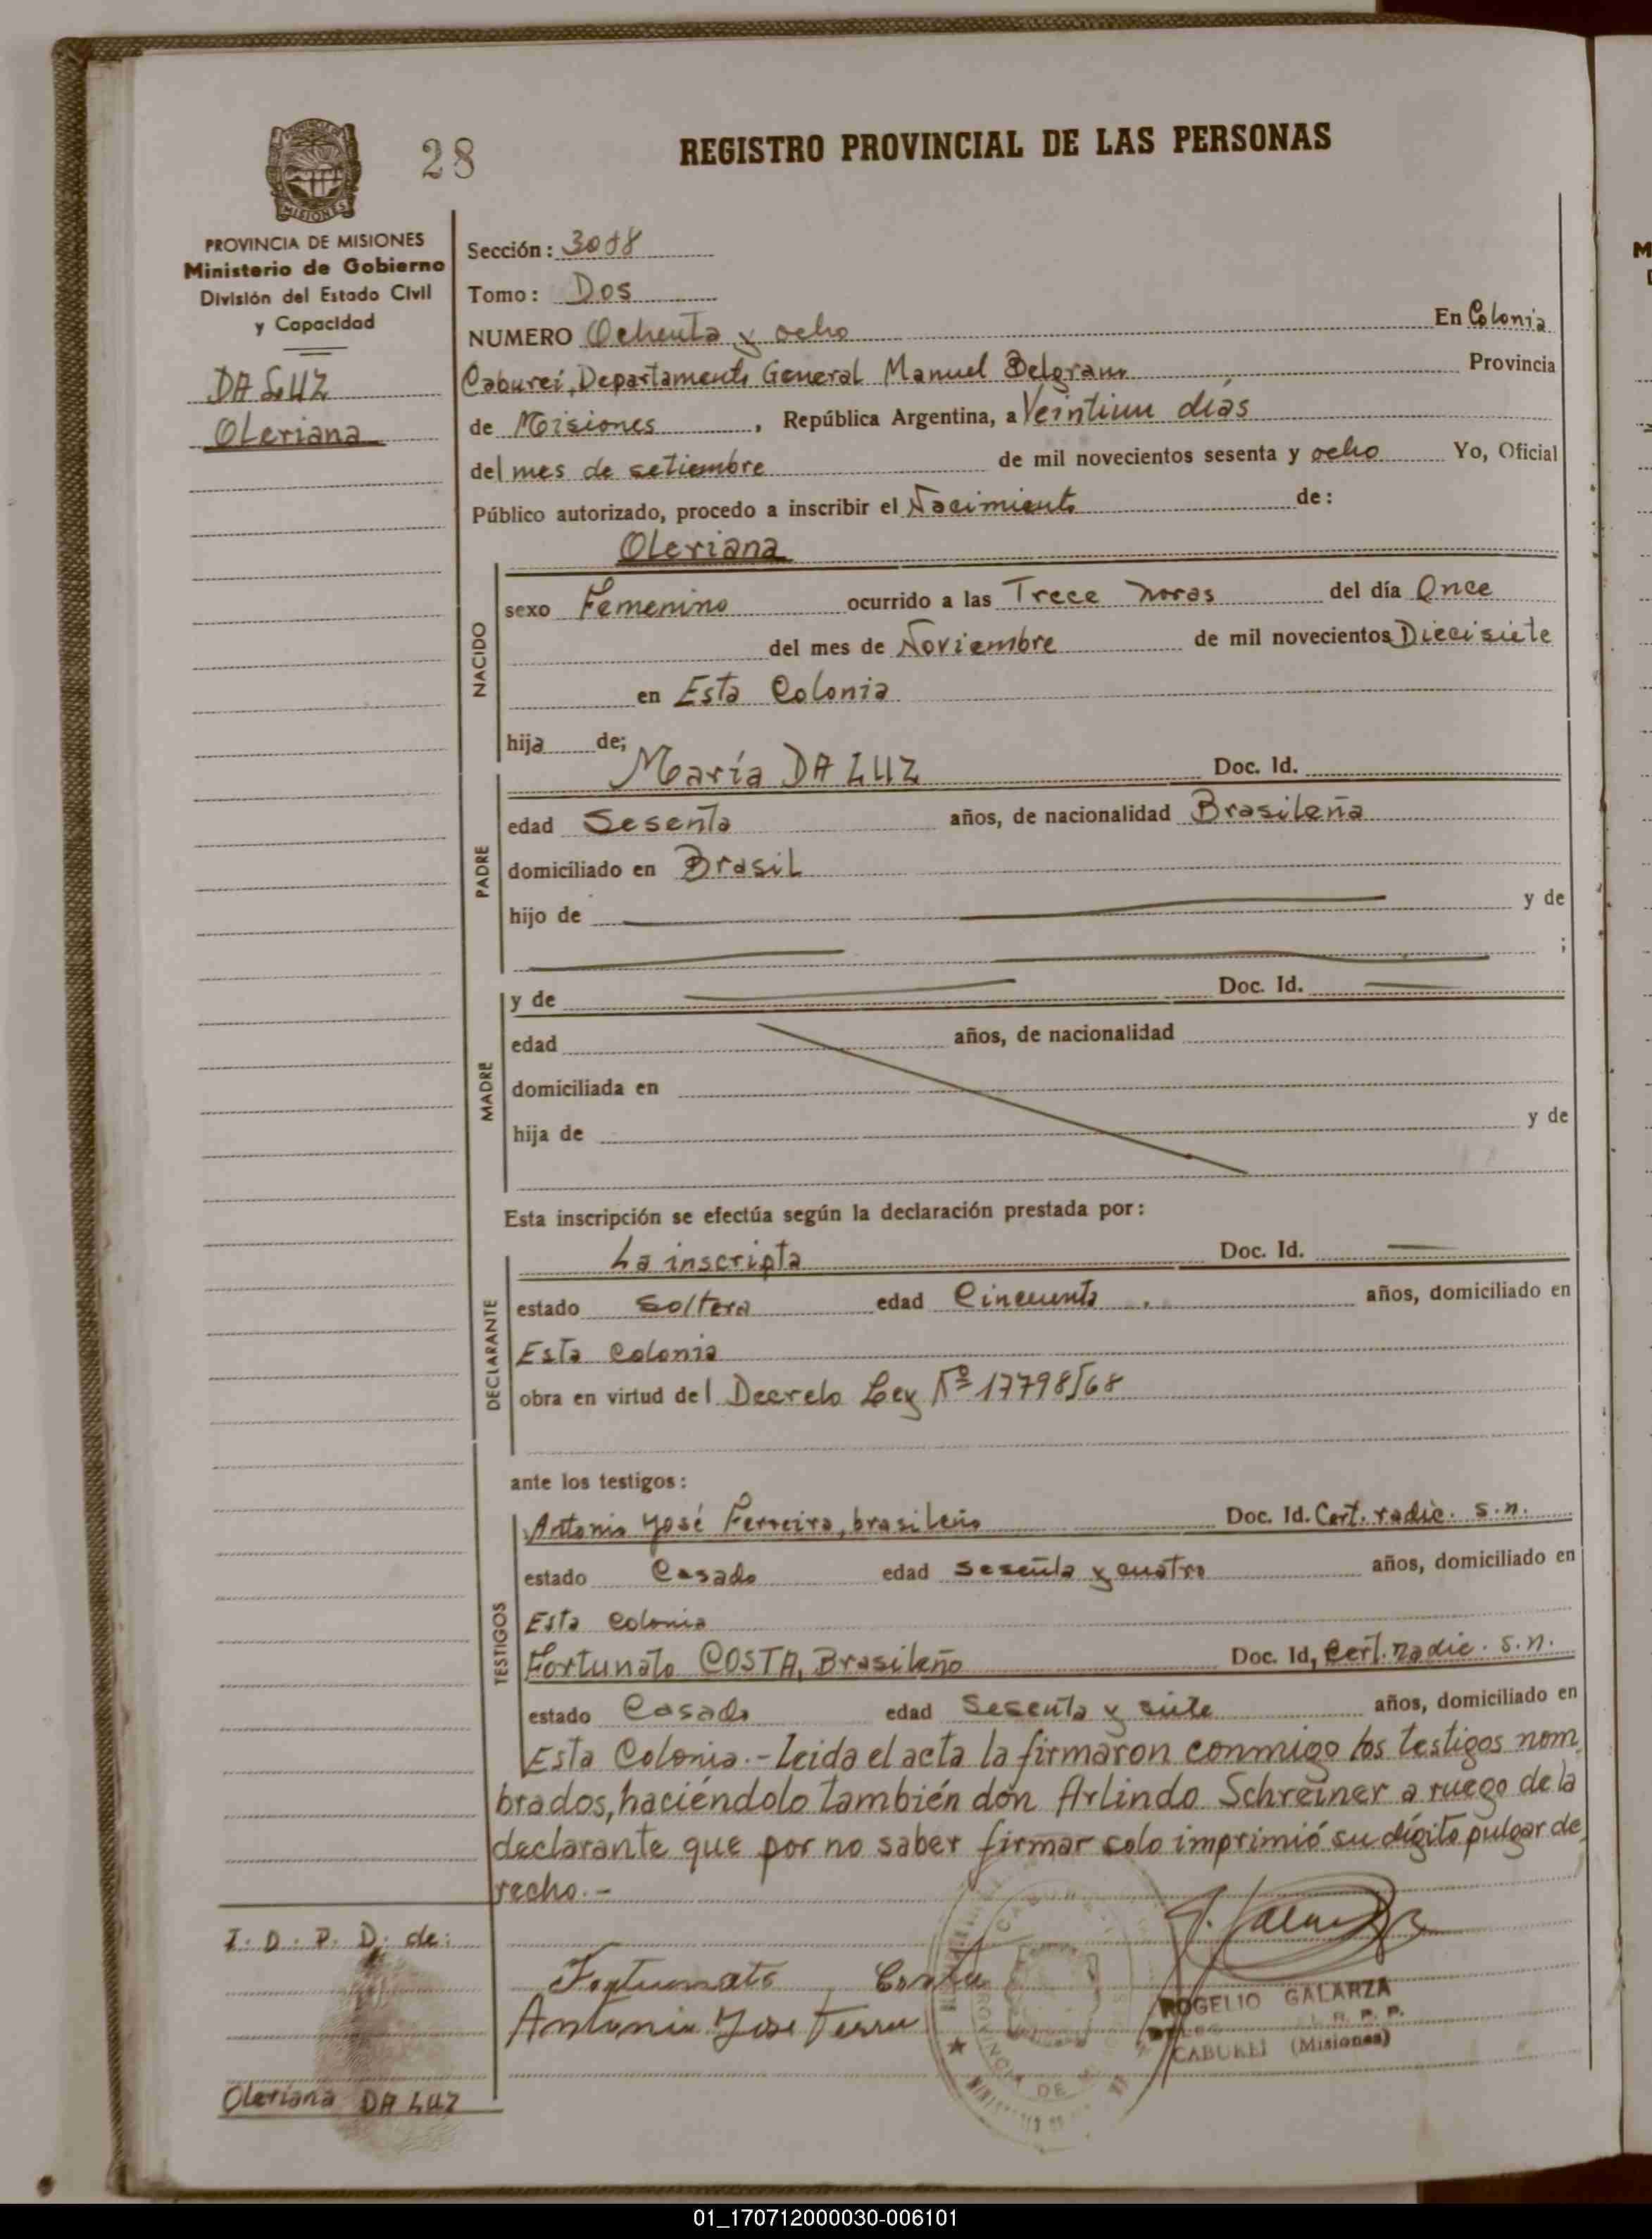 28
REGISTRO PROVINCIAL DE LAS PERSONAS
MISIONES
PROVINCIA DE MISIONES
Ministerio de Gobierno
División del Estado Civil
y Capacidad
DA LUZ
Oleriana
Sección: 3088
Tomo: Dos
NUMERO Ochenta y ocho En Colonia
Caburei, Departamento General Manuel Belgrano Provincia
de Misiones, República Argentina, a Veintiun días
del mes de setiembre de mil novecientos sesenta y ocho Yo, Oficial
Público autorizado, procedo a inscribir el Nacimiento de:
Oleriana
NACIDO
sexo Femenino ocurrido a las Trece horas del día Once
del mes de Noviembre de mil novecientos Diecisiete
en Esta Colonia
hija de;
María DA LUZ Doc. Id.
PADRE
edad Sesenta años, de nacionalidad Brasileña
domiciliado en Brasil
hijo de y de
;
y de Doc. Id.
MADRE
edad años, de nacionalidad
domiciliada en
hija de y de
Esta inscripción se efectúa según la declaración prestada por:
La inscripta Doc. Id.
DECLARANTE
estado Soltera edad Cincuenta años, domiciliado en
Esta Colonia
obra en virtud del Decreto Ley Nº 17798/68
ante los testigos:
TESTIGOS
Antonio José Ferreira, brasileño Doc. Id. Cert. radic. s.n.
estado Casado edad Sesenta y cuatro años, domiciliado en
Esta Colonia
Fortunato COSTA, Brasileño Doc. Id, Cert. radic. s.n.
estado Casado edad Sesenta y siete años, domiciliado en
Esta Colonia.- Leida el acta la firmaron conmigo los testigos nom
brados, haciéndolo también don Arlindo Schreiner a ruego de la
declarante que por no saber firmar solo imprimió su dígito pulgar de
recho.-
I. D. P. D. de:
Fortunato Costa
Antonio Jose
ROGELIO GALARZA
R. P. P.
CABUREI (Misiones)
Oleriana DA LUZ
01_170712000030-006101